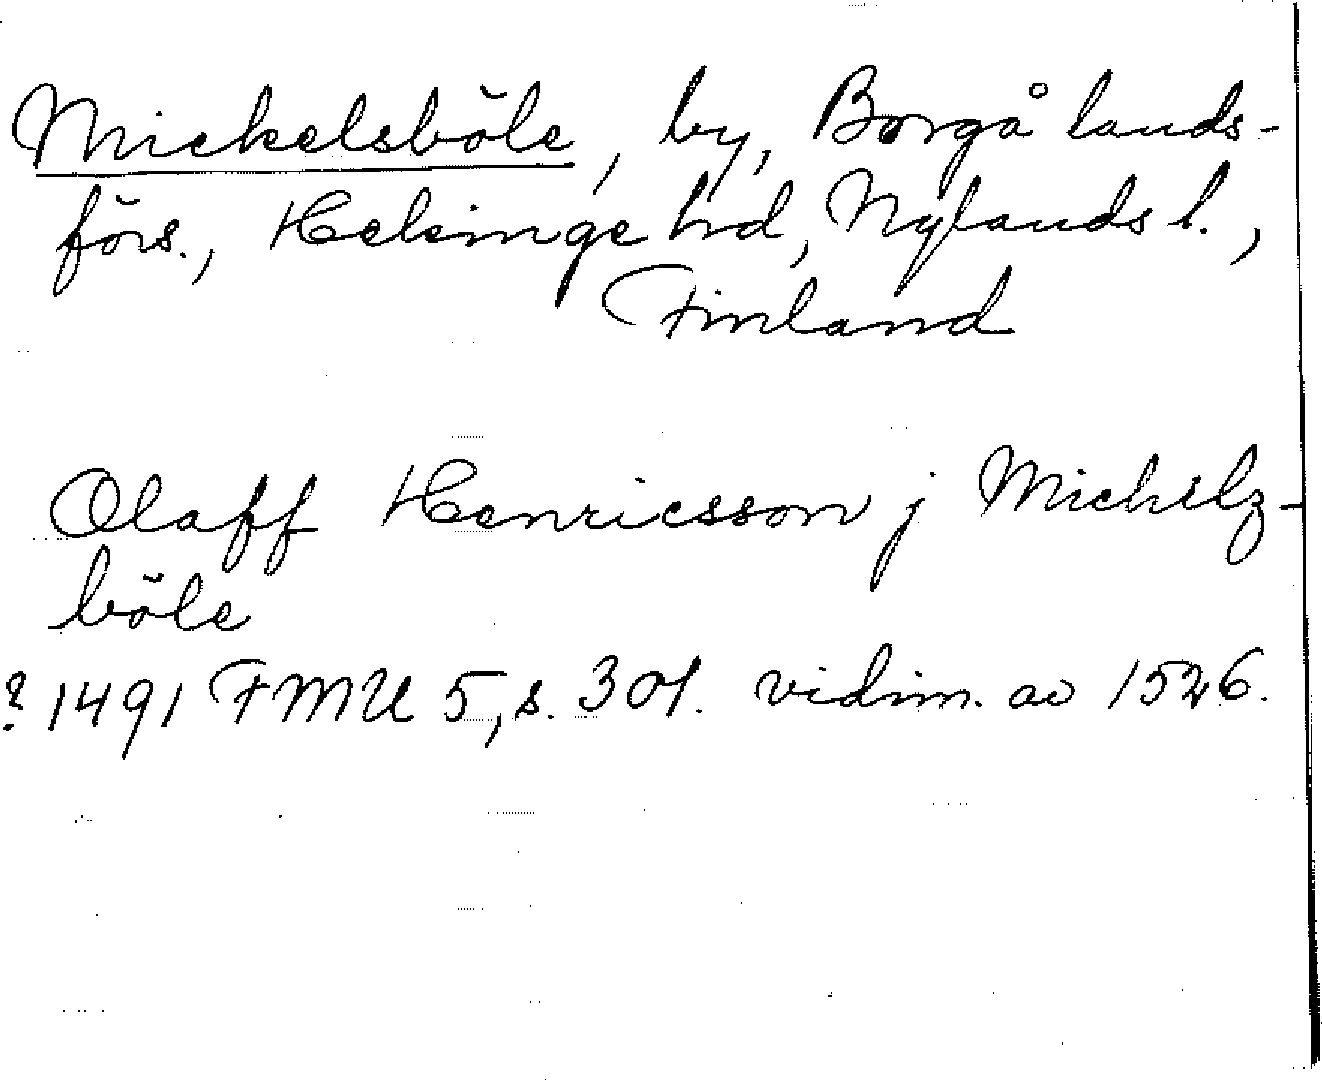 Mickelsböle, by, Borgå lands-
förs., Helsinge hd, Nylands l.,
Finland
Olaff Henricsson j Michelz-
böle
? 1491 FMU 5, s. 301. vidim. av 1526.